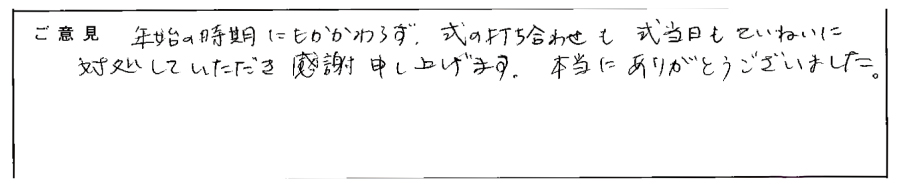 ご意見 年始の時期にもかかわらず、式の打ち合わせも 式当日もていねいに
対処していただき 感謝申し上げます。 本当に ありがとうございました。